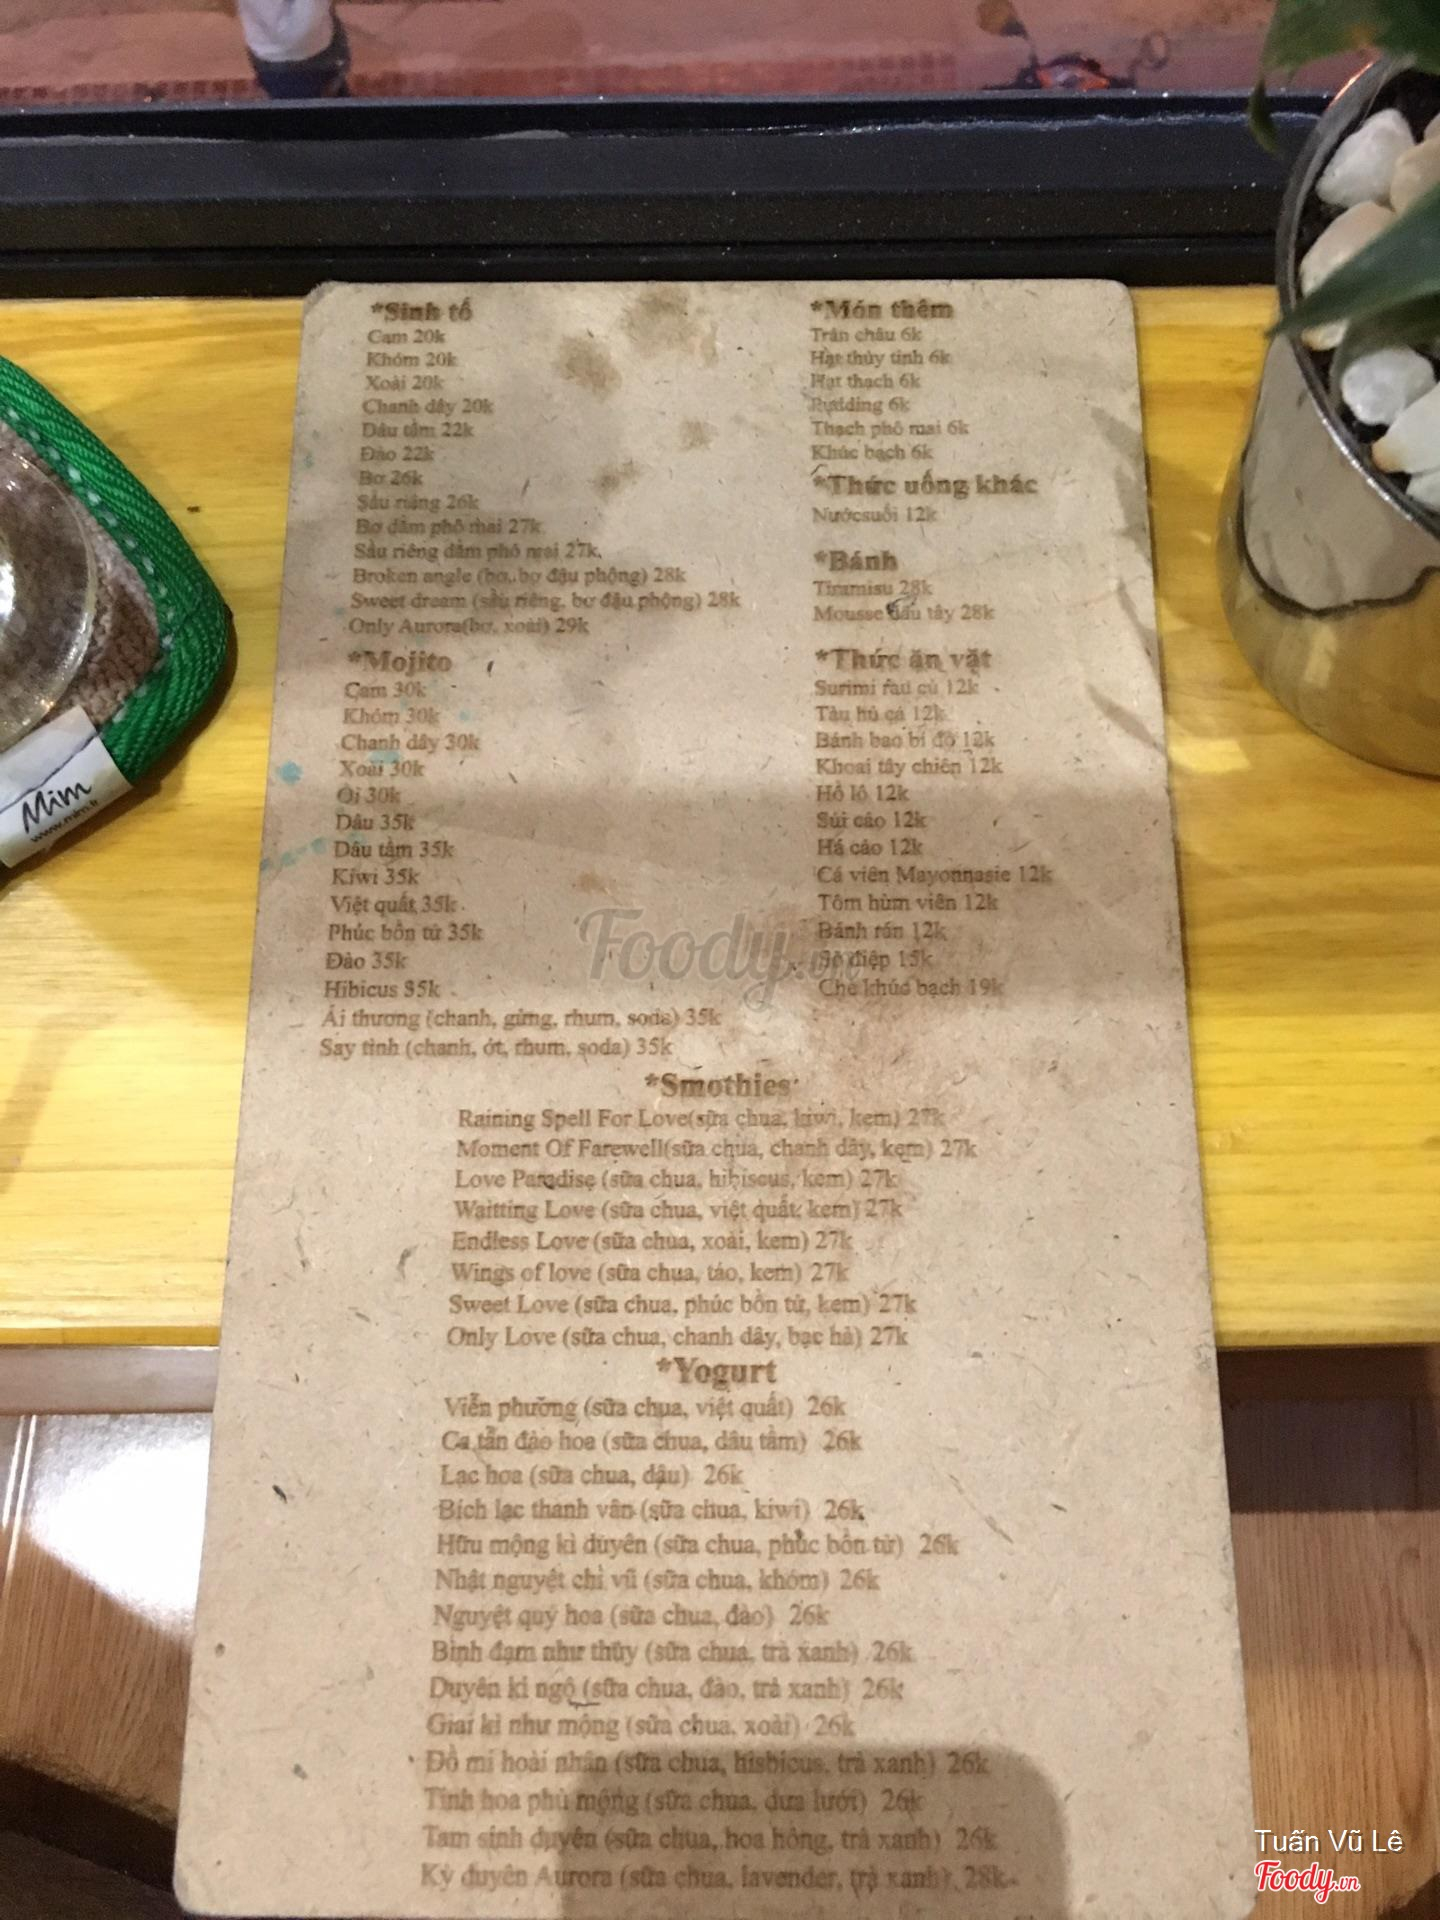 *Sinh tố
Cam 20k
Khóm 20k
Xoài 20k
Chanh dây 20k
Dâu tằm 22k
Đào 22k
Bơ 26k
Sầu riêng 26k
Bơ dầm phô mai 27k
Sầu riêng dầm phô mai 27k
Broken angle (bơ, bơ đậu phộng) 28k
Sweet dream (sầu riêng, bơ đậu phộng) 28k
Only Aurora(bơ, xoài) 29k
*Mojito
Cam 30k
Khóm 30k
Chanh dây 30k
Xoài 30k
Ổi 30k
Dâu 35k
Dâu tằm 35k
Kiwi 35k
Việt quất 35k
Phúc bồn tử 35k
Đào 35k
Hibicus 35k
Ái thương (chanh, gừng, rhum, soda) 35k
Say tình (chanh, ớt, rhum, soda) 35k
*Món thêm
Trân châu 6k
Hạt thủy tinh 6k
Hạt thạch 6k
Pudding 6k
Thạch phô mai 6k
Khúc bạch 6k
*Thức uống khác
Nướcsuối 12k
*Bánh
Tiramisu 28k
Mousse dâu tây 28k
*Thức ăn vặt
Surimi rau củ 12k
Tàu hủ cá 12k
Bánh bao bí đỏ 12k
Khoai tây chiên 12k
Hồ lô 12k
Sủi cảo 12k
Há cảo 12k
Cá viên Mayonnasie 12k
Tôm hùm viên 12k
Bánh rán 12k
Sò điệp 15k
Chè khúc bạch 19k
*Smothies
Raining Spell For Love(sữa chua, kiwi, kem) 27k
Moment Of Farewell(sữa chua, chanh dây, kem) 27k
Love Paradise (sữa chua, hibiscus, kem) 27k
Waitting Love (sữa chua, việt quất, kem) 27k
Endless Love (sữa chua, xoài, kem) 27k
Wings of love (sữa chua, táo, kem) 27k
Sweet Love (sữa chua, phúc bồn tử, kem) 27k
Only Love (sữa chua, chanh dây, bạc hà) 27k
*Yogurt
Viễn phường (sữa chua, việt quất) 26k
Ca tẫn đào hoa (sữa chua, dâu tằm) 26k
Lạc hoa (sữa chua, dâu) 26k
Bích lạc thanh vân (sữa chua, kiwi) 26k
Hữu mộng kì duyên (sữa chua, phúc bồn tử) 26k
Nhật nguyệt chi vũ (sữa chua, khóm) 26k
Nguyệt quý hoa (sữa chua, đào) 26k
Bình đạm như thủy (sữa chua, trà xanh) 26k
Duyên kì ngộ (sữa chua, đào, trà xanh) 26k
Giai kì như mộng (sữa chua, xoài) 26k
Đồ mi hoài nhân (sữa chua, hisbicus, trà xanh) 26k
Tinh hoa phù mộng (sữa chua, dưa lưới) 26k
Tam sinh duyên (sữa chua, hoa hồng, trà xanh) 26k
Kỳ duyên Aurora (sữa chua, lavender, trà xanh) 28k
Mim
www.mim.fr
Foody.vn
Tuấn Vũ Lê
Foody.vn